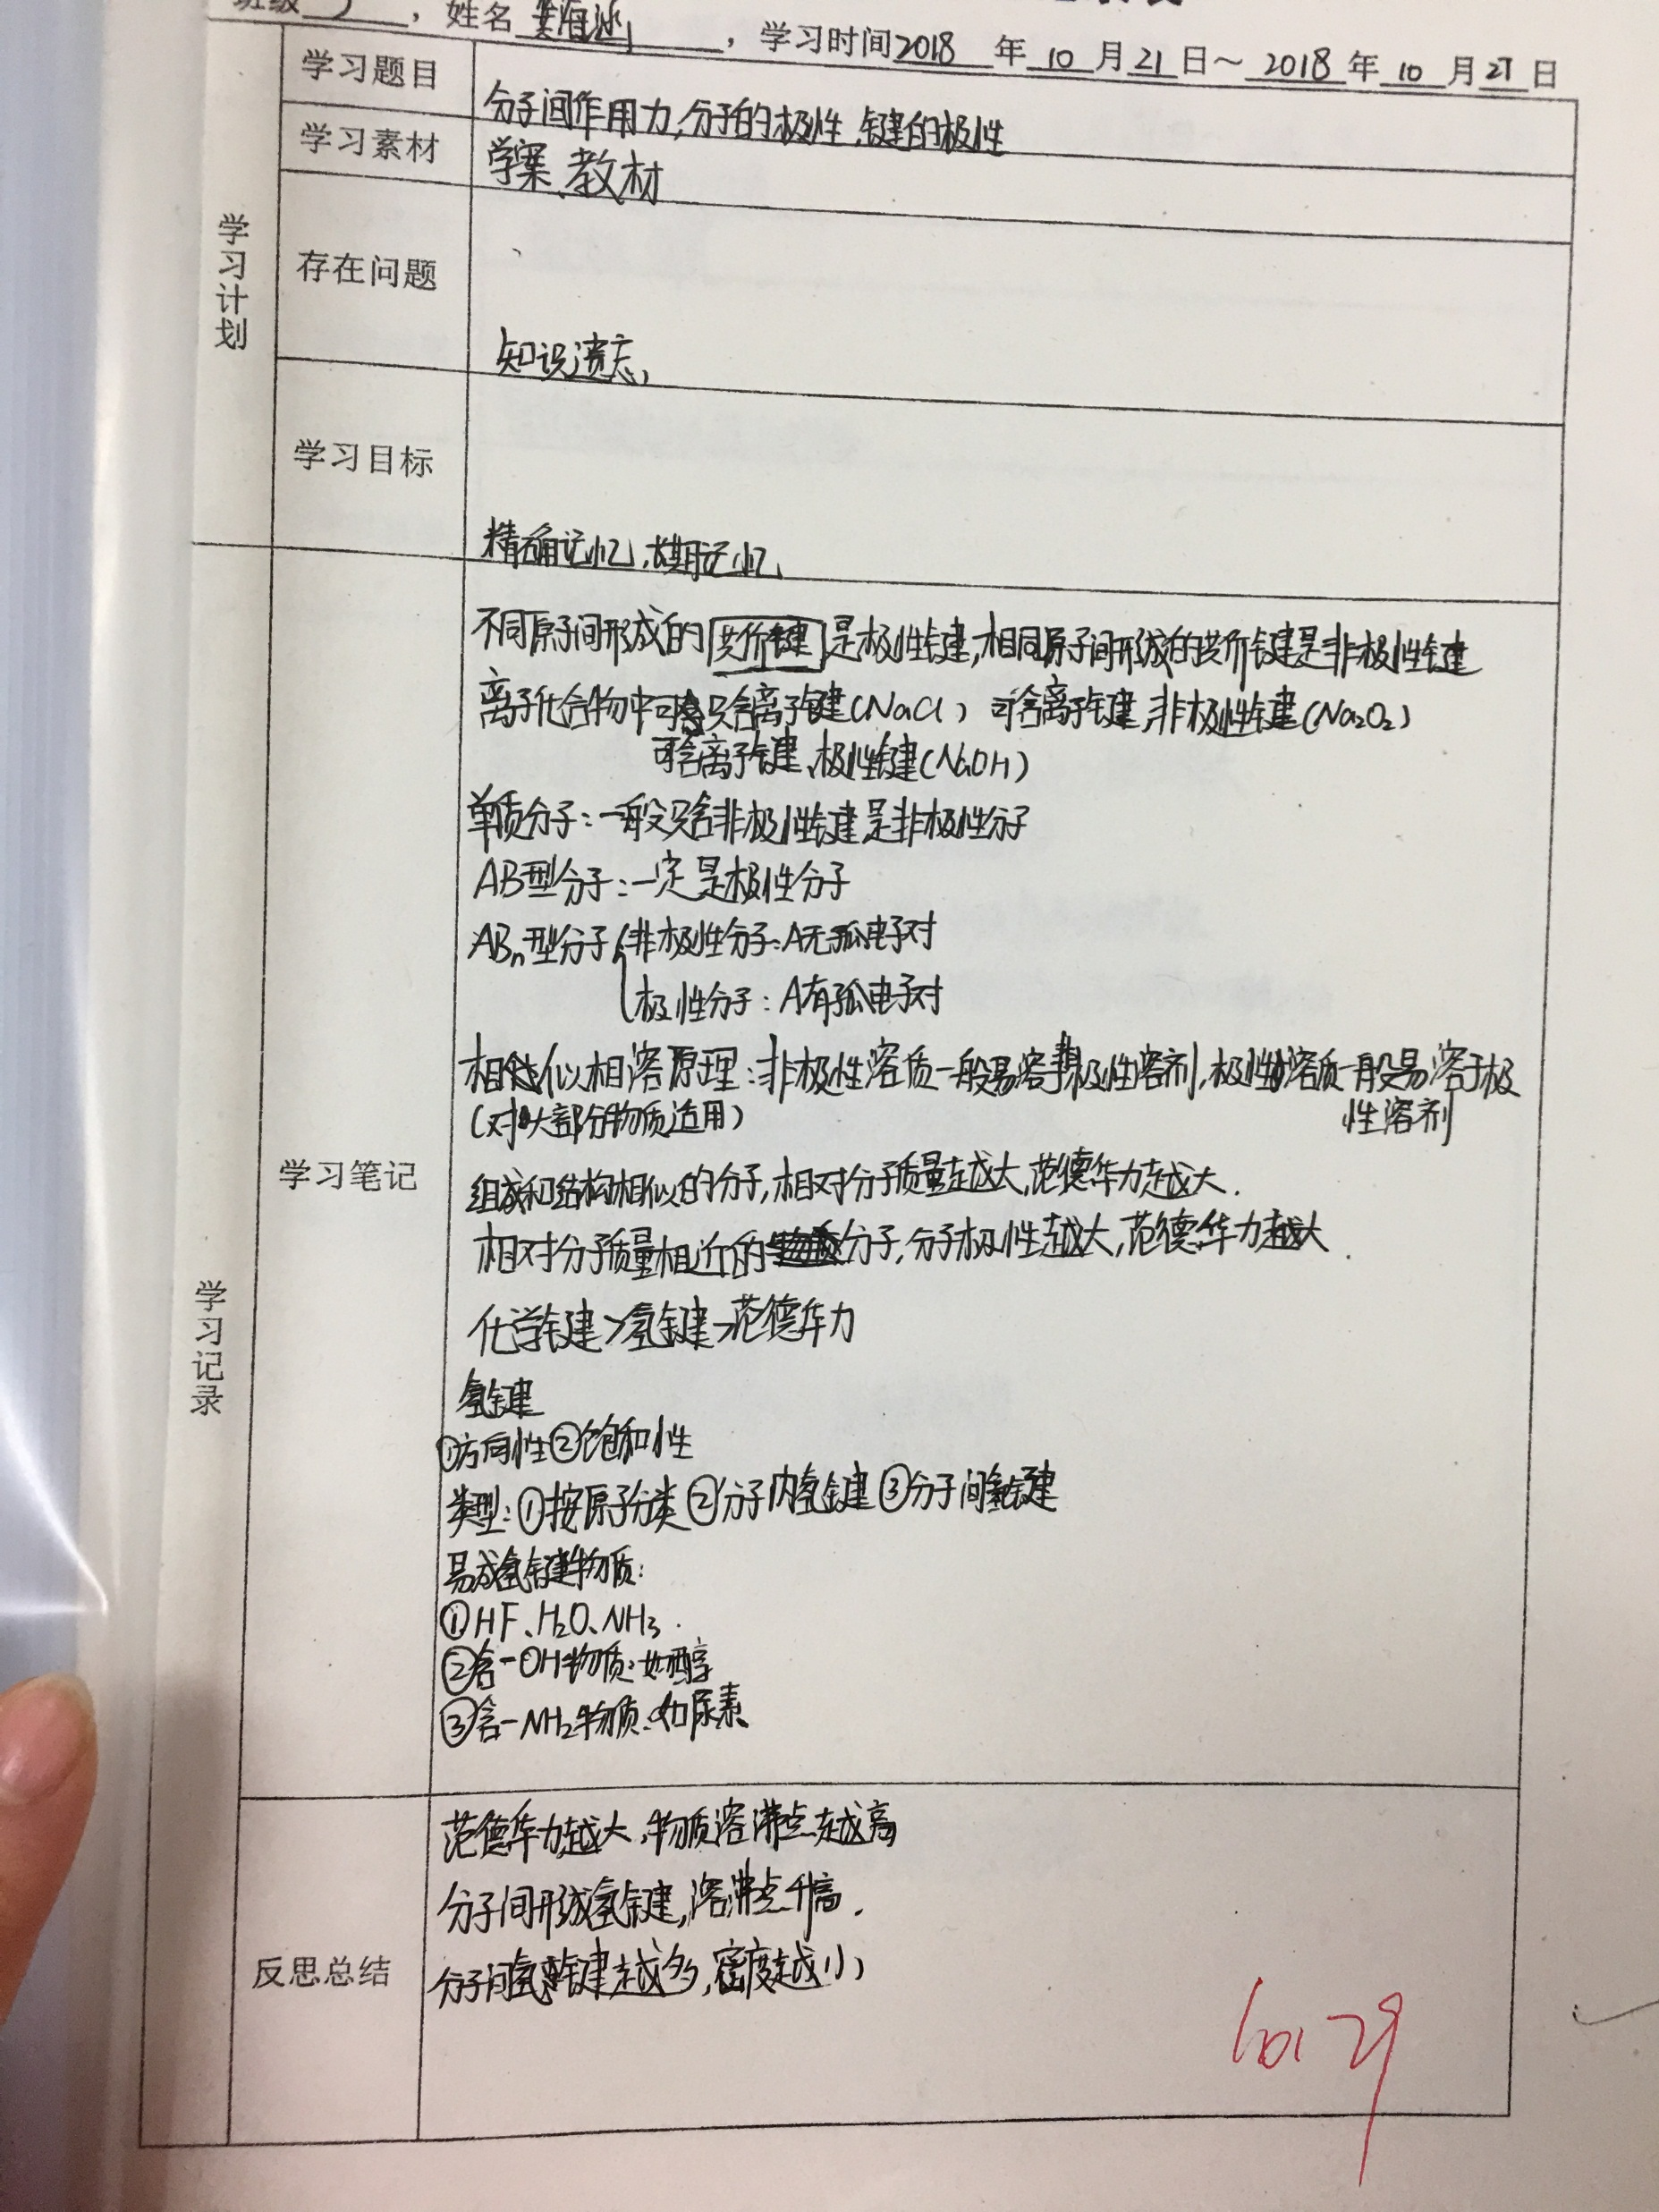 班级 5 ，姓名 ，学习时间2018 年 10 月 21 日～ 2018 年 10 月 27 日
学习计划
学习题目
分子间作用力,分子的极性,键的极性
学习素材
学案、教材
存在问题
知识遗忘,
学习目标
精确记忆,长期记忆
学习记录
学习笔记
不同原子间形成的共价键是极性键,相同原子间形成的共价键是非极性键
离子化合物中可只含离子键(NaCl) 可含离子键,非极性键(Na₂O₂)
可含离子键、极性键(NaOH)
单质分子:一般只含非极性键是非极性分子
AB型分子:一定是极性分子
ABn型分子{非极性分子:A无孤电子对
极性分子:A有孤电子对
相似相溶原理:非极性溶质一般易溶于非极性溶剂,极性溶质一般易溶于极
性溶剂
(对大部分物质适用)
组成和结构相似的分子,相对分子质量越大,范德华力越大.
相对分子质量相近的分子,分子极性越大,范德华力越大.
化学键>氢键>范德华力
氢键
①方向性②饱和性
类型:①按原子分类②分子内氢键③分子间氢键
易成氢键物质:
①HF、H₂O、NH₃.
②含-OH物质:如醇
③含-NH₂物质:如尿素
反思总结
范德华力越大,物质溶沸点越高
分子间形成氢键,溶沸点升高.
分子间氢键越多,密度越小